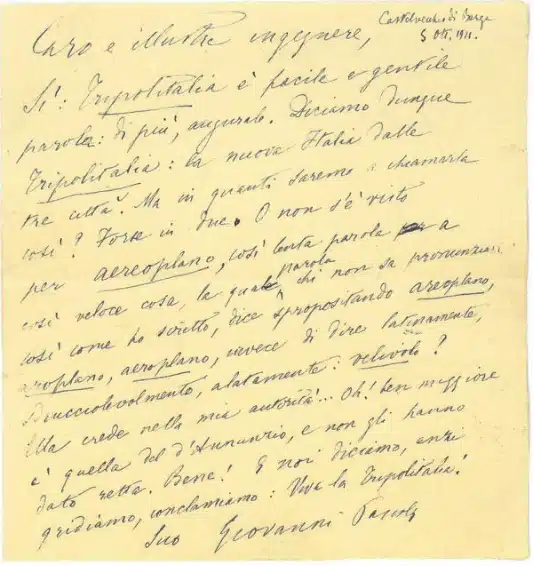 Castelvecchio di Barga
5 Ott. 1911.
Caro e illustre ingegnere,
Sì: Tripolitalia è facile e gentile
parola: di più, augurale. Diciamo dunque
Tripolitalia: la nuova Italia dalle
tre città. Ma in quanti saremo a chiamarla
così? Forse in due. O non s'è visto
per aereoplano, così lenta parola a
così veloce cosa, la quale parola chi non sa pronunziare
così come ho scritto, dice spropositando areoplano,
aroplano, aeroplano, invece di dire latinamente,
alatamente: velivolo?
Ella crede nella mia autorità!.. Oh! ben maggiore
è quella del d'Annunzio, e non gli hanno
dato retta. Bene! E noi diciamo, anzi
gridiamo, conclamiamo: Viva la Tripolitalia!
Suo Giovanni Pascoli